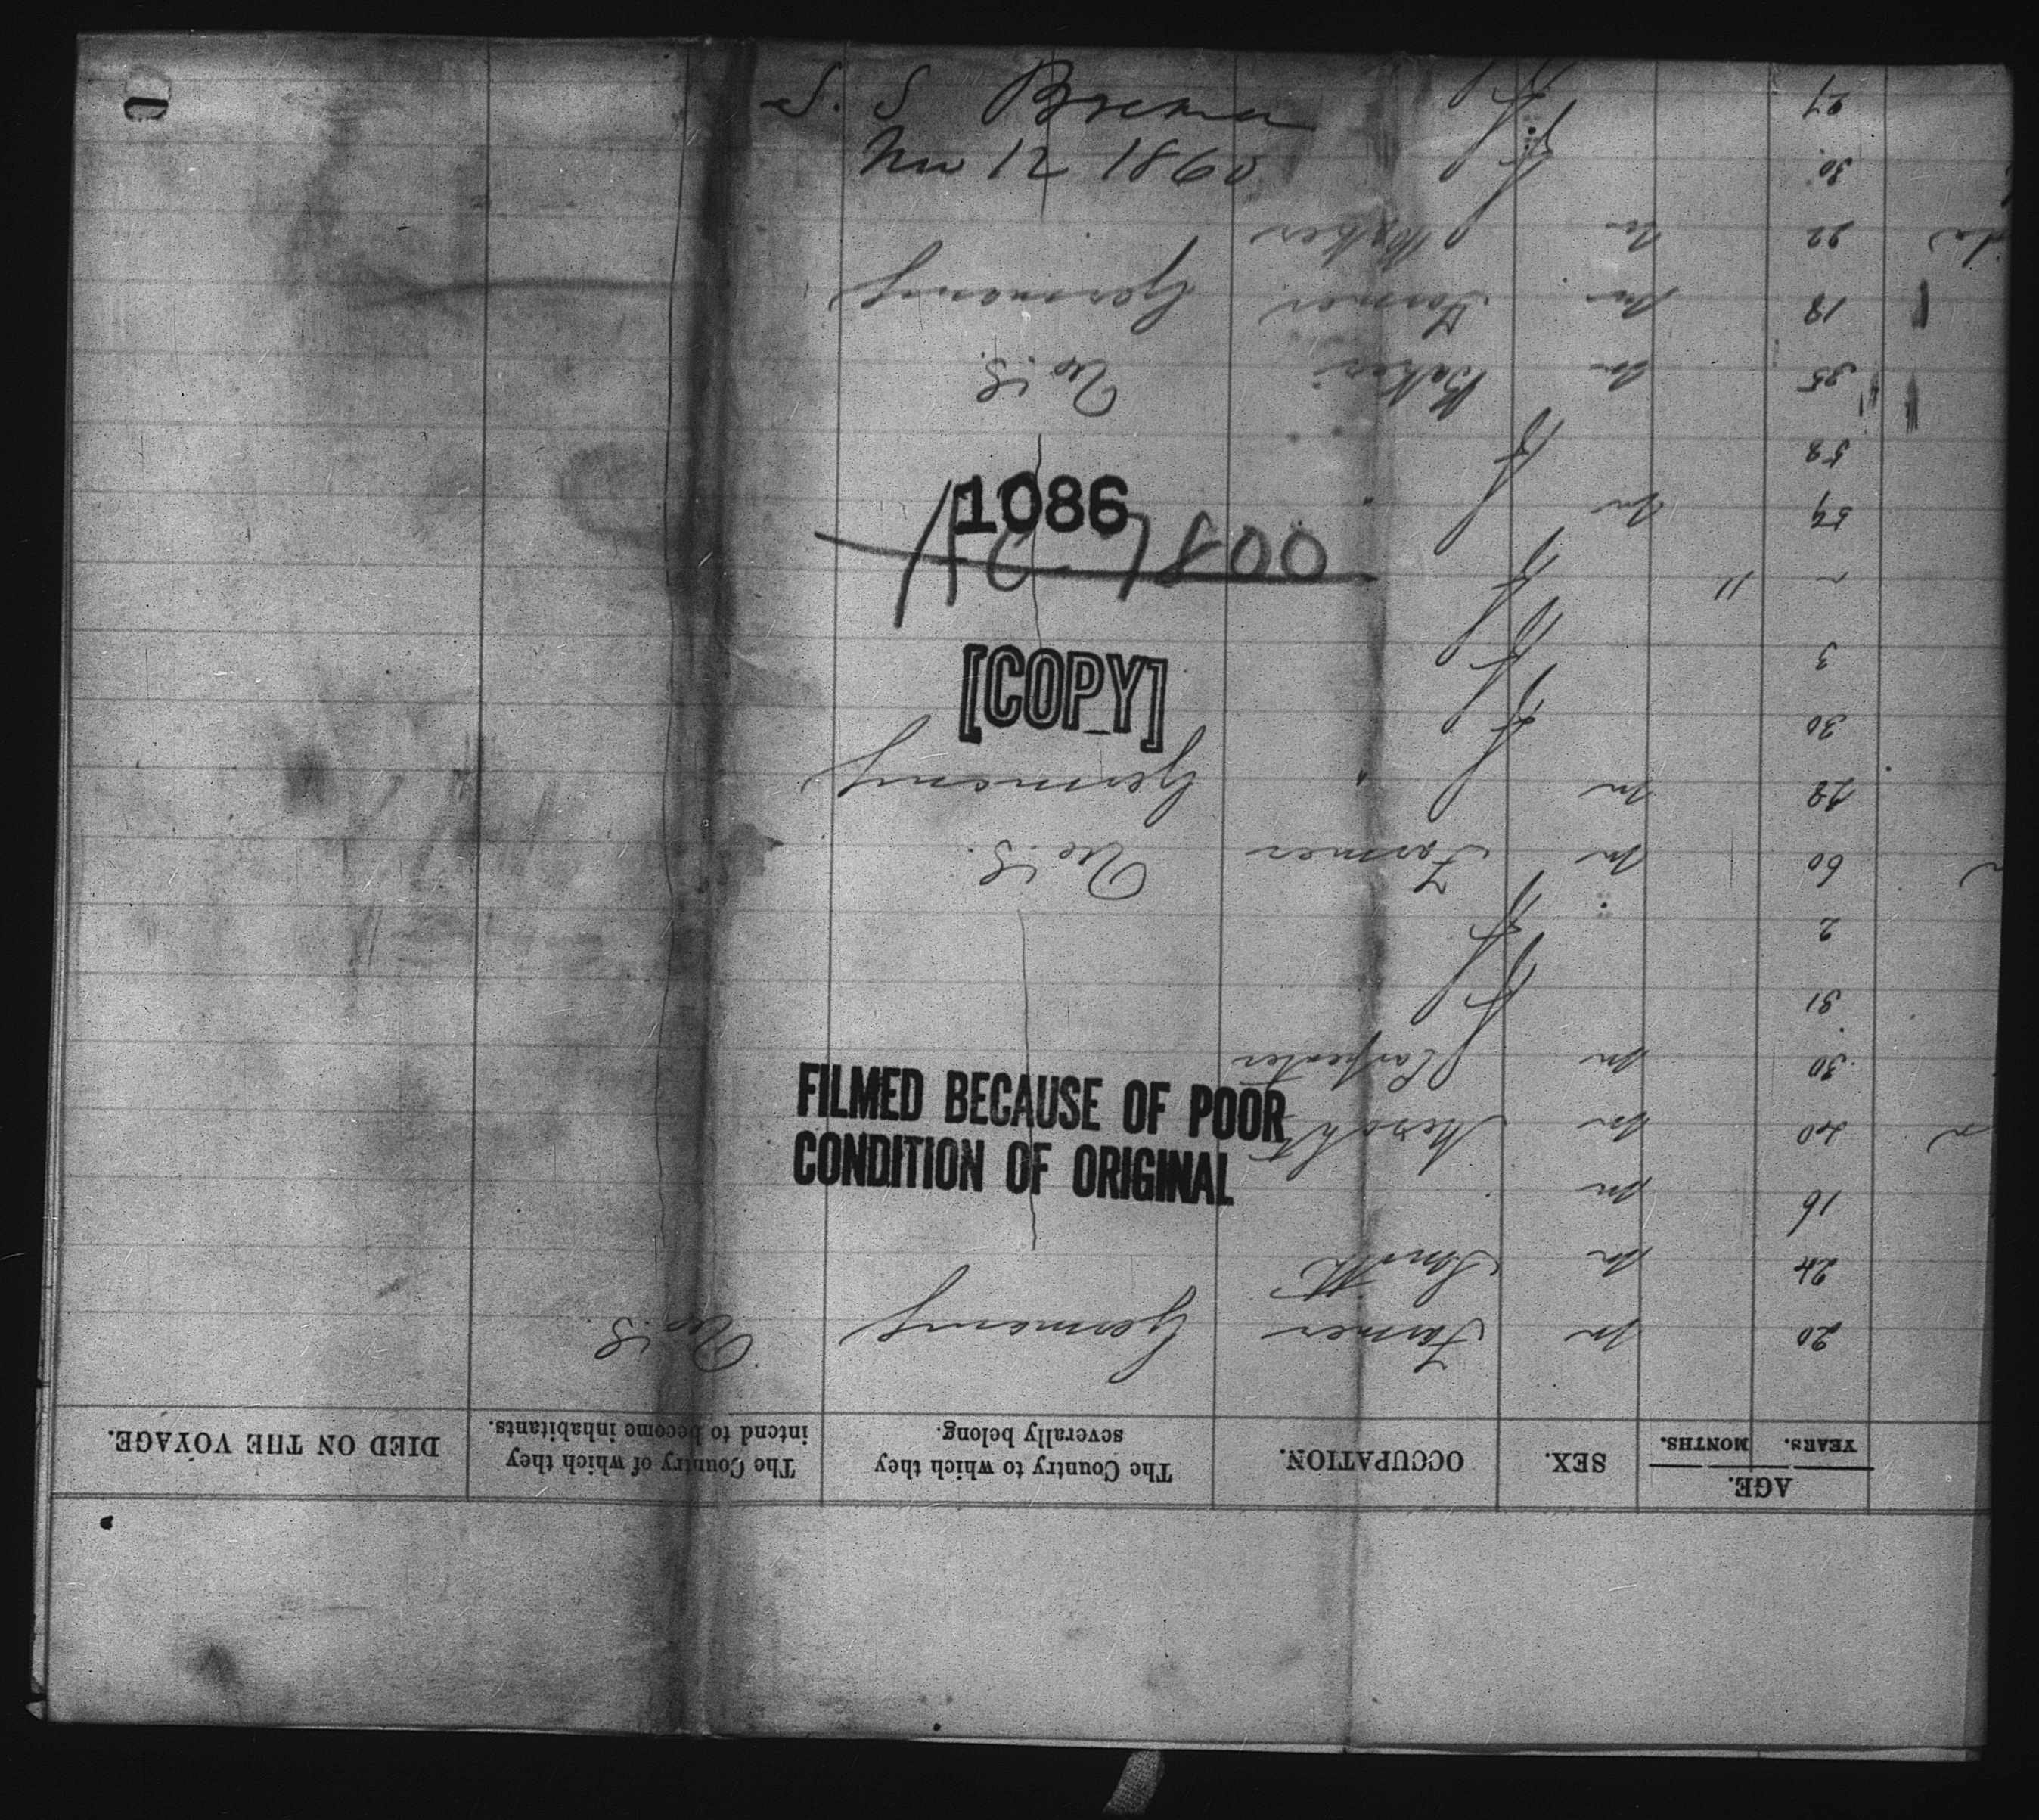 S. S Bremen
Nov 12 1860
1086
1800
[COPY]
FILMED BECAUSE OF POOR
CONDITION OF ORIGINAL
AGE.
YEARS. MONTHS. SEX. OCCUPATION. The Country to which they severally belong. The Country of which they intend to become inhabitants. DIED ON THE VOYAGE.
20 m Farmer Germany U.S.
24 m Smith
16 m
20 m Mercht
30 m Carpenter
31 f
2 f
60 m Farmer U.S.
28 m " Germany
30 f
3 f
" f
59 m "
52 f
35 m Baker U.S.
18 m Farmer Germany
22 m
30 f
27 f